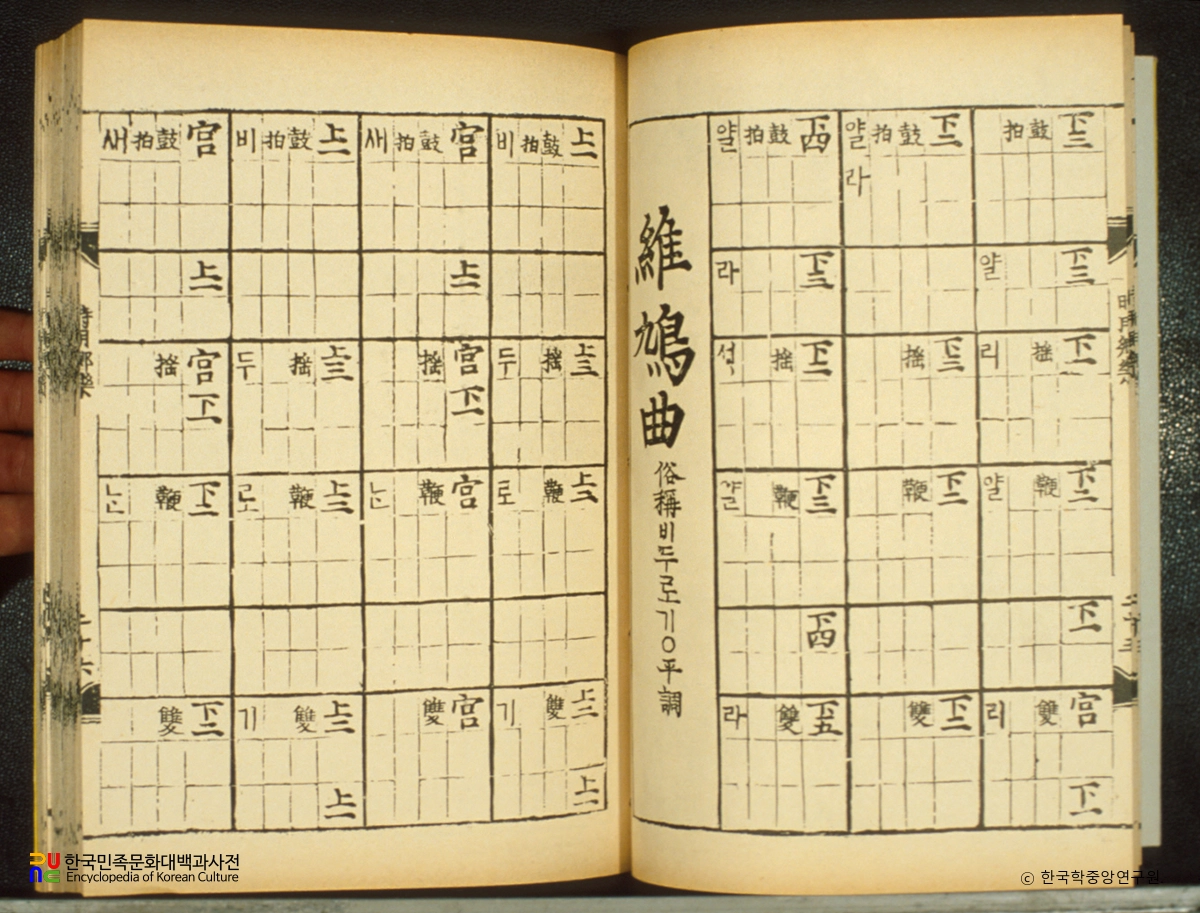 下三 下三 下一 下二 下一 宮 下一
鼓 搖 鞭 雙
拍
얄 리 얄 리
下三 下三 下二 下二
鼓 搖 鞭 雙
拍
얄라
下四 下三 下二 下三 下四 下五
鼓 搖 鞭 雙
拍
얄 라 셩 얄 라
維鳩曲 俗稱비두로기○平調
上一 上三 上二 上二 上一
鼓 搖 鞭 雙
拍
비 두 로 기
宮 上一 宮 下一 宮 宮
鼓 搖 鞭 雙
拍
새 ᄂᆞᆫ
上一 上三 上二 上二 上一
鼓 搖 鞭 雙
拍
비 두 로 기
宮 上一 宮 下一 下一 下二
鼓 搖 鞭 雙
拍
새 ᄂᆞᆫ
時用鄕樂
二十六
한국민족문화대백과사전
Encyclopedia of Korean Culture
ⓒ 한국학중앙연구원